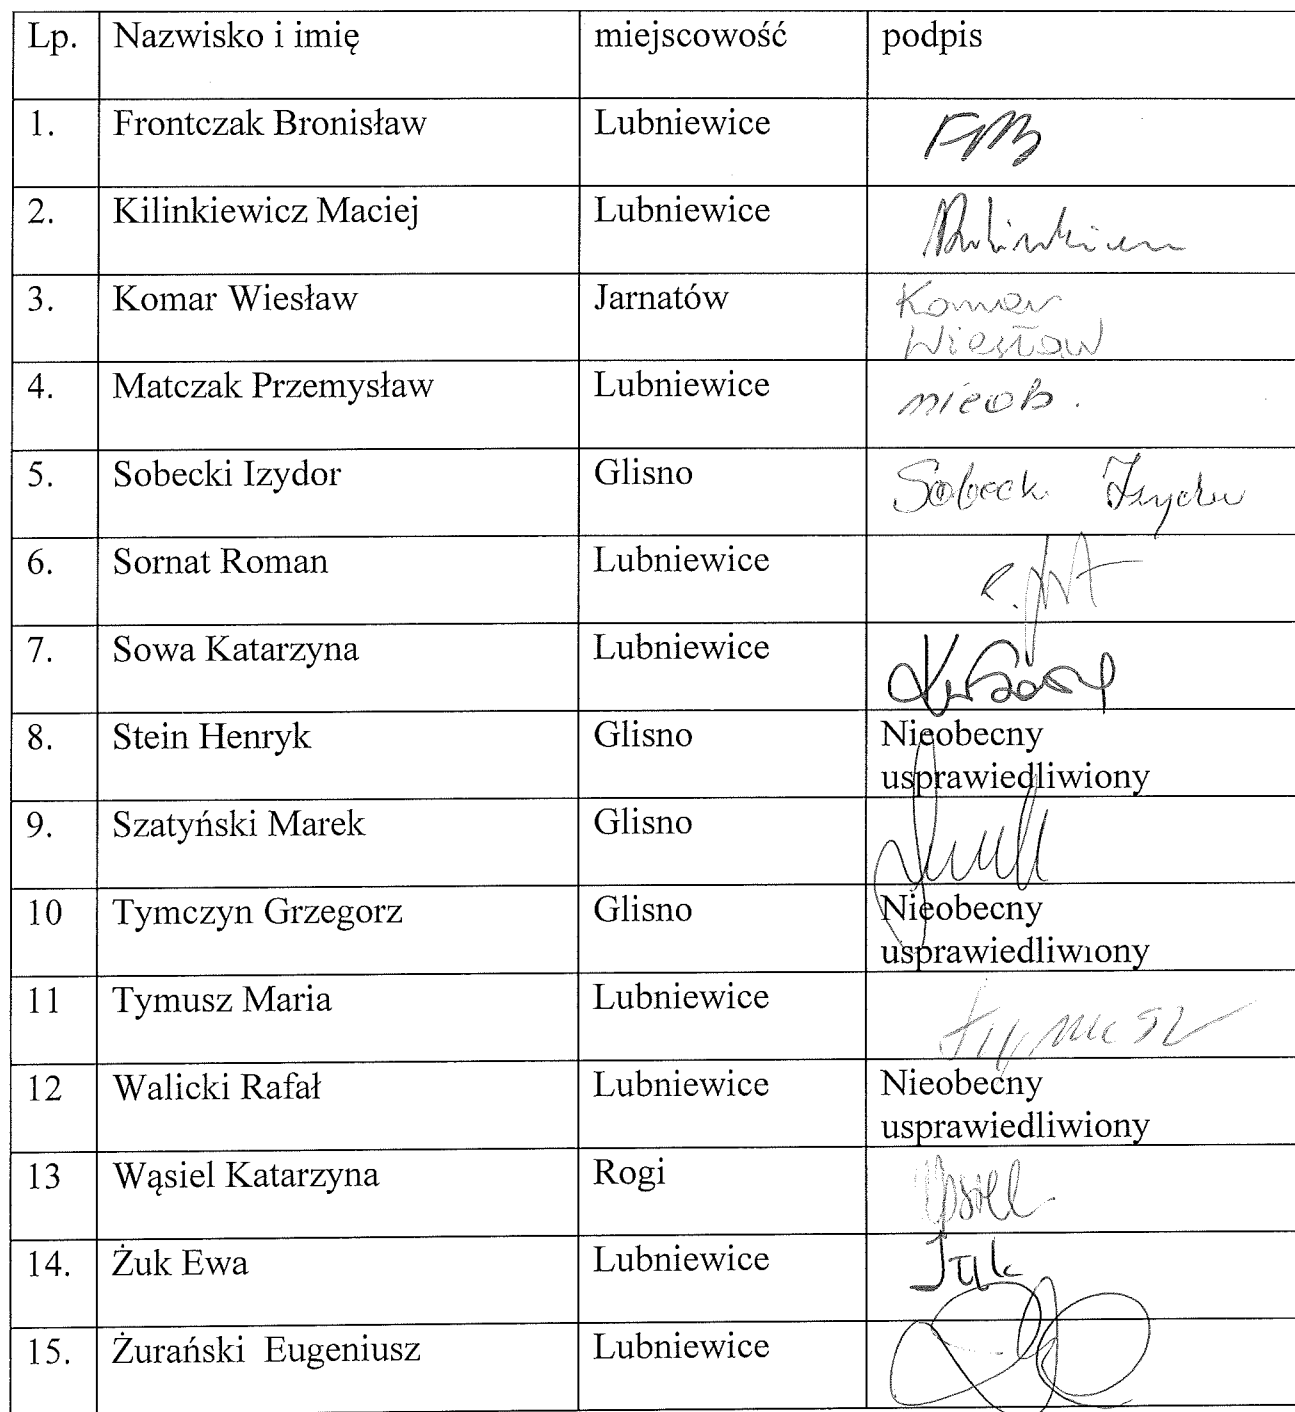 Lp. Nazwisko i imię miejscowość podpis
1. Frontczak Bronisław Lubniewice
2. Kilinkiewicz Maciej Lubniewice
3. Komar Wiesław Jarnatów Komar
Wiesław
4. Matczak Przemysław Lubniewice nieob.
5. Sobecki Izydor Glisno
6. Sornat Roman Lubniewice
7. Sowa Katarzyna Lubniewice
8. Stein Henryk Glisno Nieobecny
usprawiedliwiony
9. Szatyński Marek Glisno
10 Tymczyn Grzegorz Glisno Nieobecny
usprawiedliwiony
11 Tymusz Maria Lubniewice
12 Walicki Rafał Lubniewice Nieobecny
usprawiedliwiony
13 Wąsiel Katarzyna Rogi
14. Żuk Ewa Lubniewice
15. Żurański Eugeniusz Lubniewice